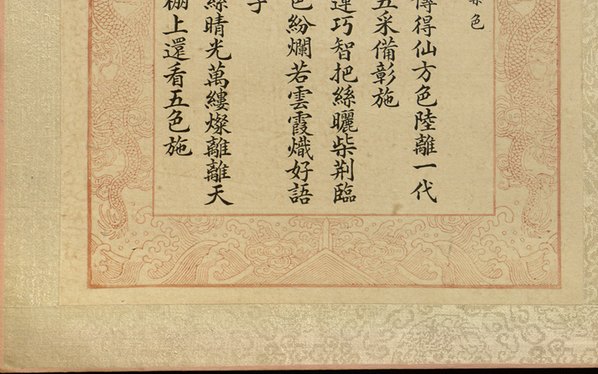 色
傳得仙方色陸離一代
五采備彰施
運巧智把絲曬柴荆臨
色紛爛若雲霞熾好語
子
絲晴光萬縷燦離離天
棚上還看五色施